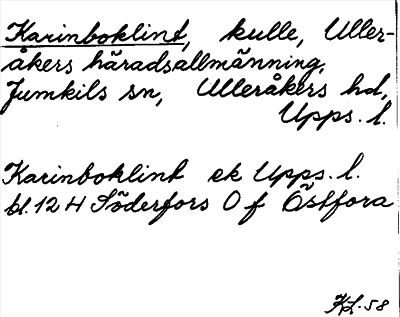 Karinboklint, kulle, Uller-
åkers häradsallmänning,
Jumkils sn, Ulleråkers hd,
Upps. l.
Karinboklint ek Upps. l.
bl. 12 H Söderfors O f Östfora
KL-58